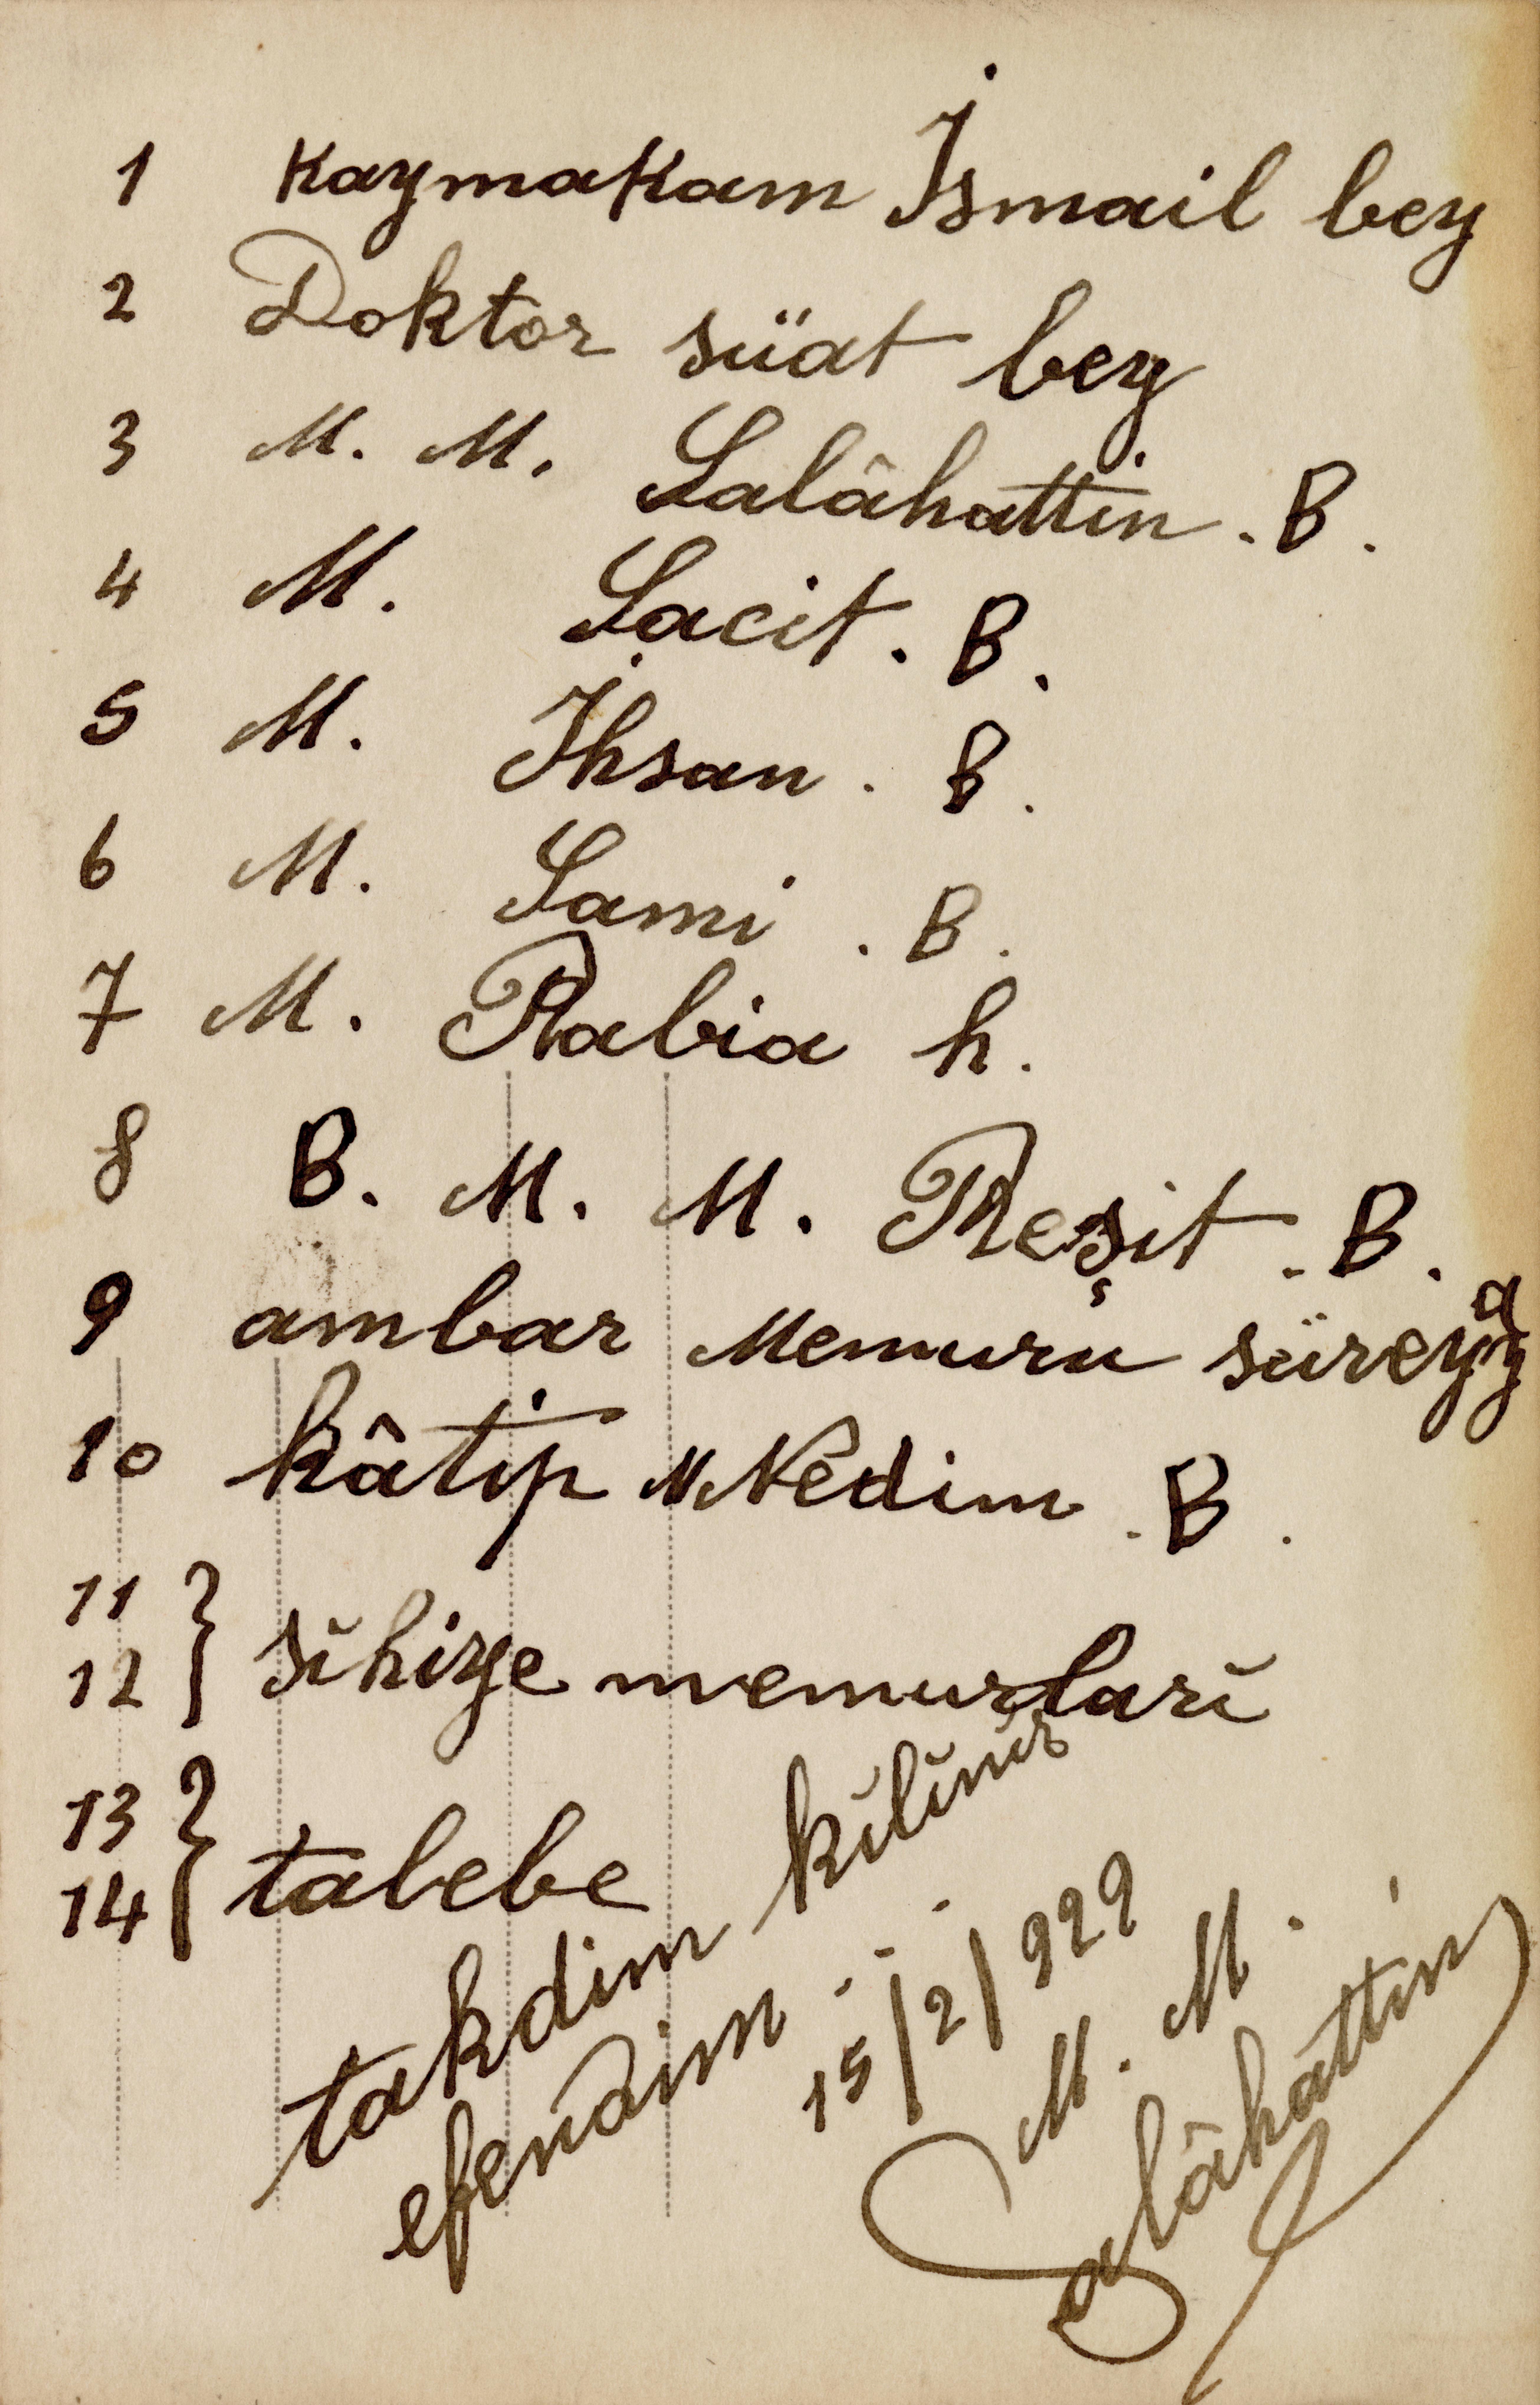 1 Kaymakam İsmail bey
2 Doktor süat bey
3 M. M. Salâhattin . B .
4 M. Sacit . B .
5 M. İhsan . B .
6 M. Sami . B .
7 M. Rabia h .
8 B. M. M. Reşit . B .
9 ambar Memuru süreyya
10 kâtip Nedim . B .
11
12 } sıhiye memurları
13
14 } talebe
takdim kılınır
efendim . . .
15/2/929
M. M.
Salâhattin